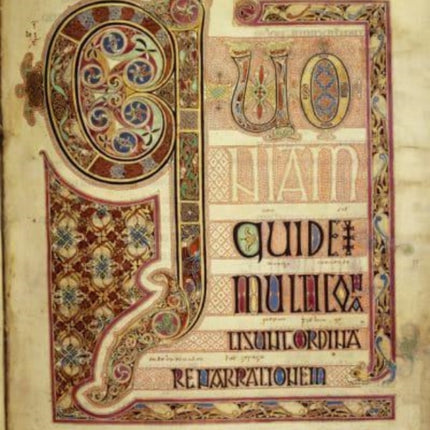 QUO
NIAM
QUIDEM
MULTICONA
TISUNTORDINA
RENARRATIONEM